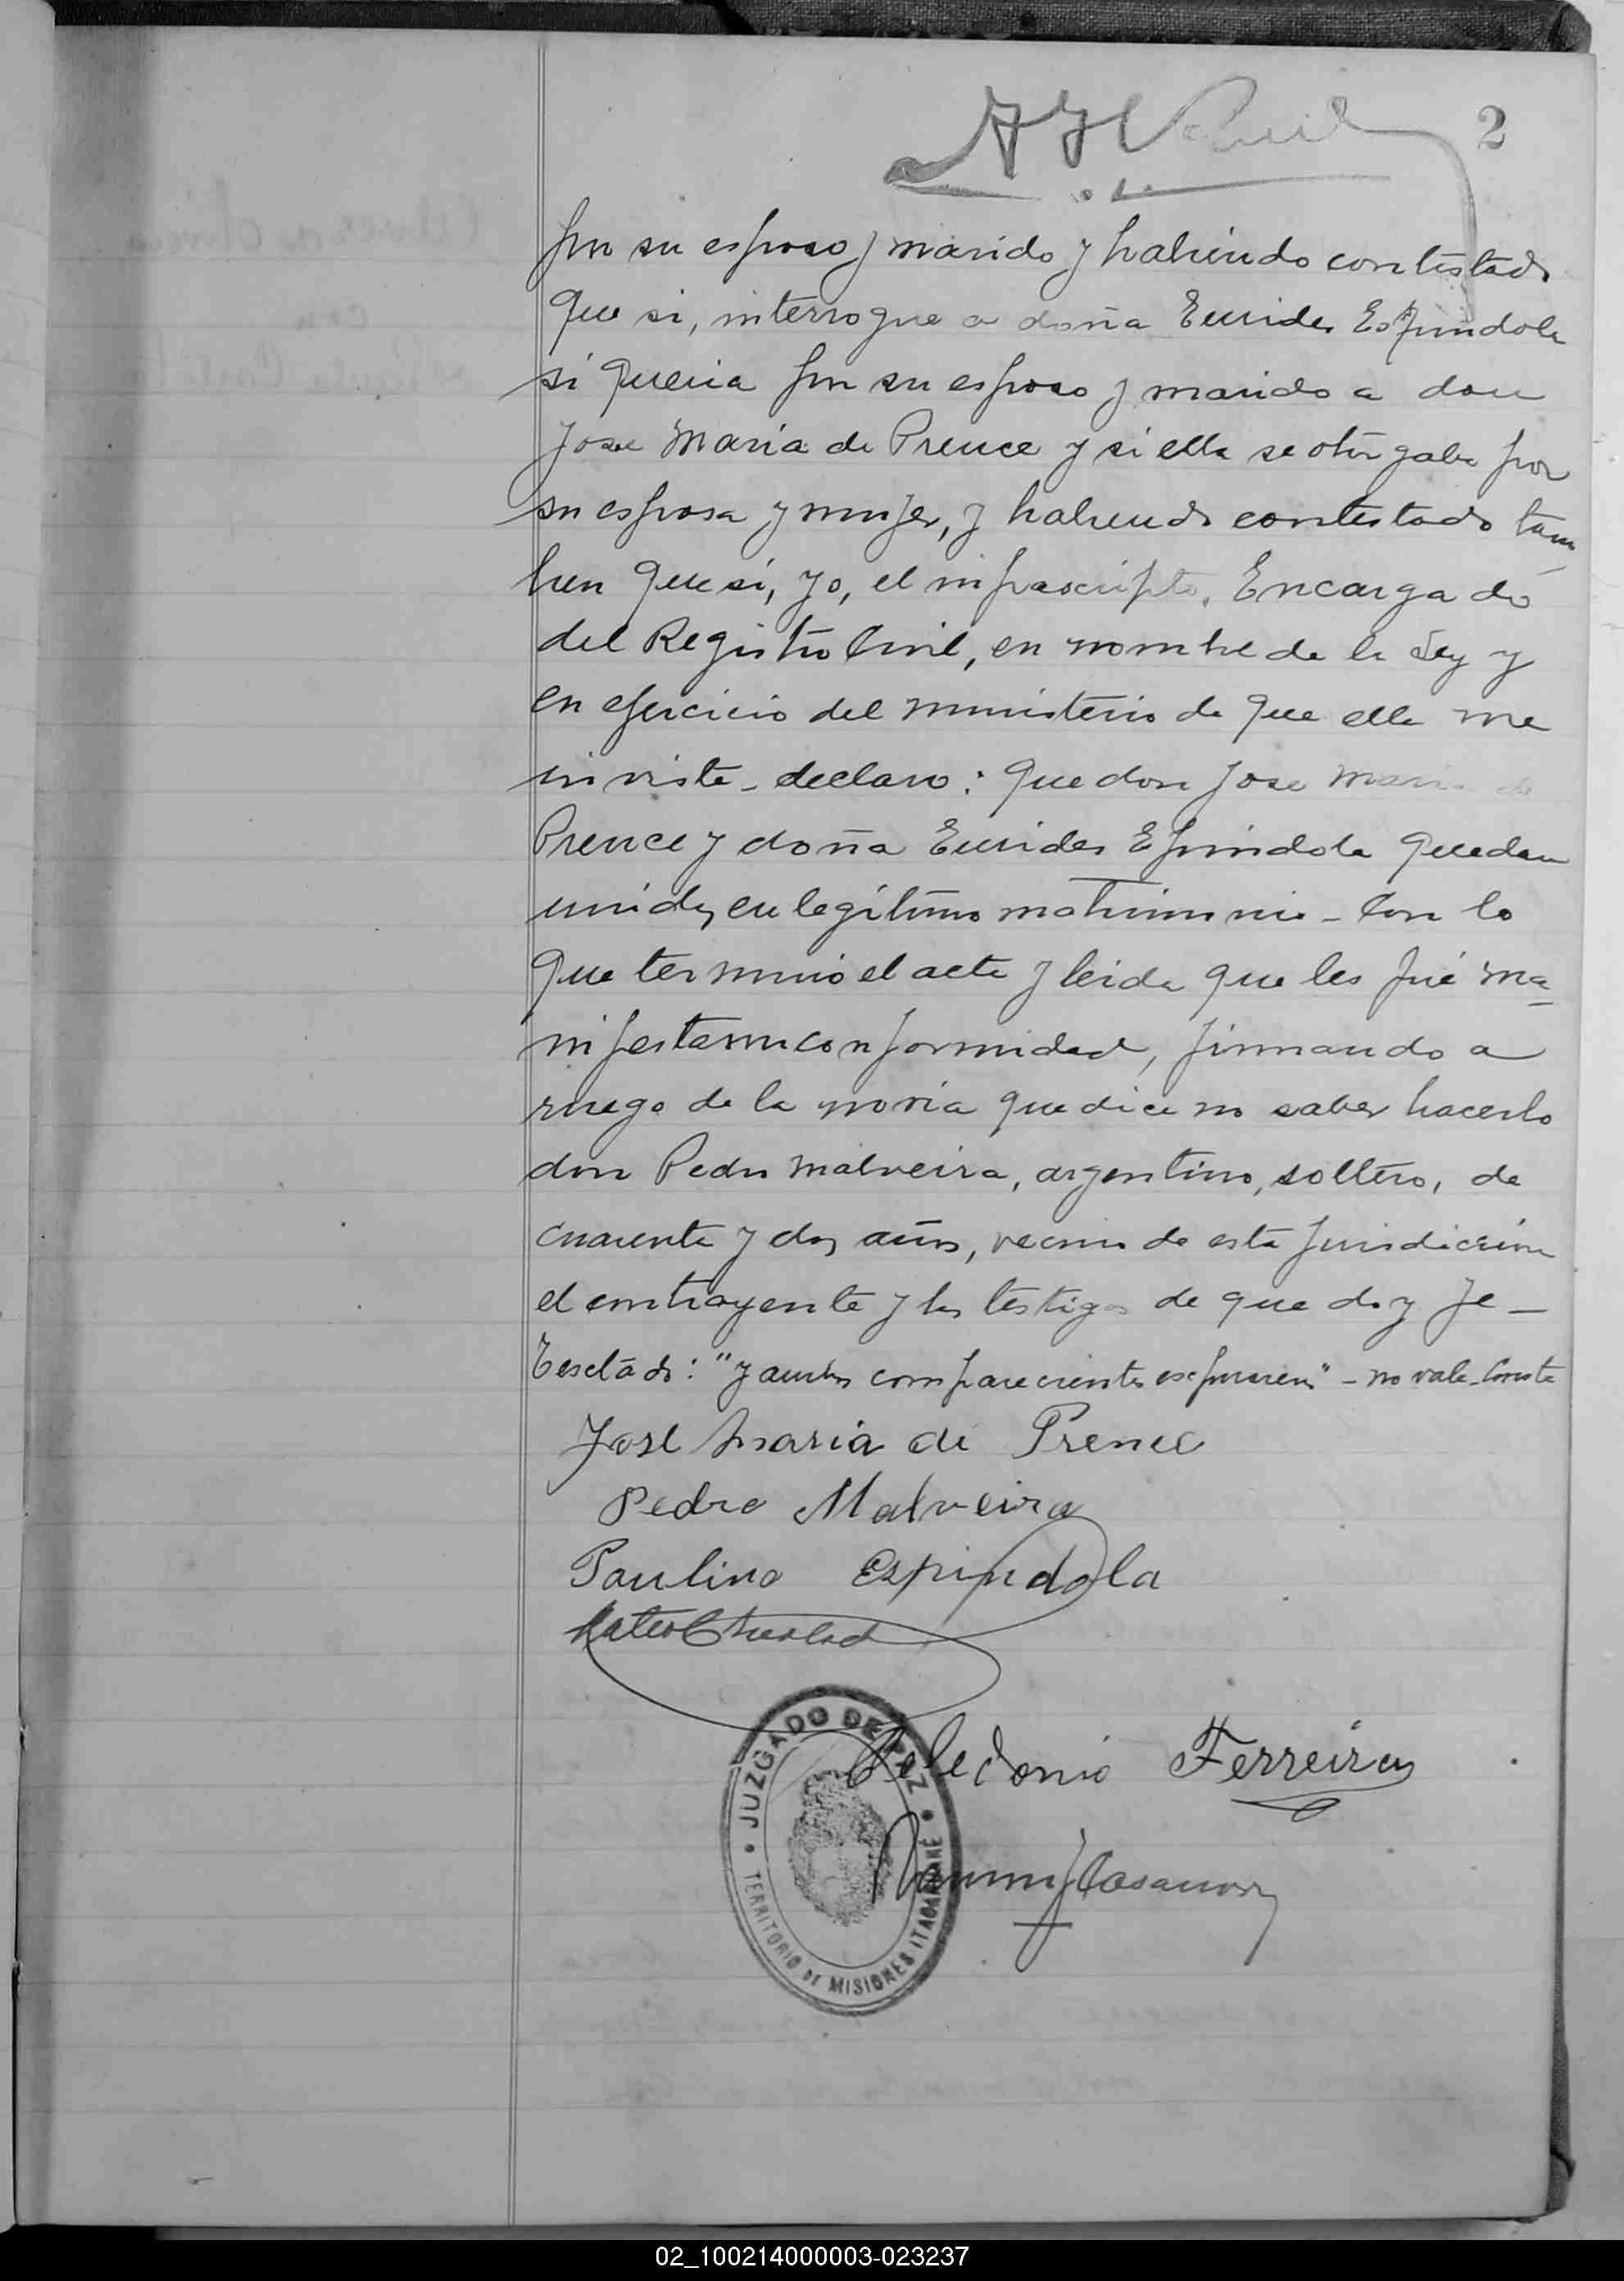 2
por su esposo y marido y habiendo contestado
que si, interrogue a doña Eurides Espindola
si queria por su esposo y marido a don
Jose Maria de Prence y si ella se otorgaba por
su esposa y mujer, y habiendo contestado tam
bien que si, yo, el infrascripto, Encargado
del Registro Civil, en nombre de la Ley y
en ejercicio del ministerio de que ella me
inviste - declaro: que don Jose Maria de
Prence y doña Eurides Espindola quedan
unidos en legitimo matrimonio - Con lo
que termino el acta y leida que les fué ma-
nifestaron conformidad, firmando a
ruego de la novia que dice no saber hacerlo
don Pedro Malveira, argentino, soltero, de
cuarenta y dos años, vecino de esta jurisdiccion
el contrayente y los testigos de que doy fe -
Testado: "y ambos comparecientes" - no vale - Conste
José Maria de Prence
Pedro Malveira
Paulino Espindola
Celedonio Ferreira
Casanova
JUZGADO DE PAZ
TERRITORIO DE MISIONES ITACARUARÉ
02_100214000003-023237